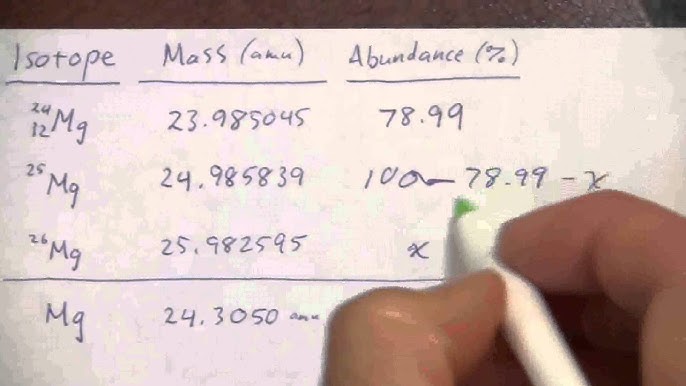 Isotope Mass (amu) Abundance (%)
24 12 Mg 23.985045 78.99
25 Mg 24.985839 100 - 78.99 - x
26 Mg 25.982595 x
Mg 24.3050 amu